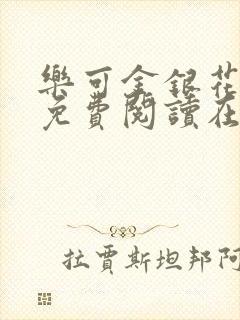 樂可金銀花
免費閱讀在
拉賈斯坦邦阿